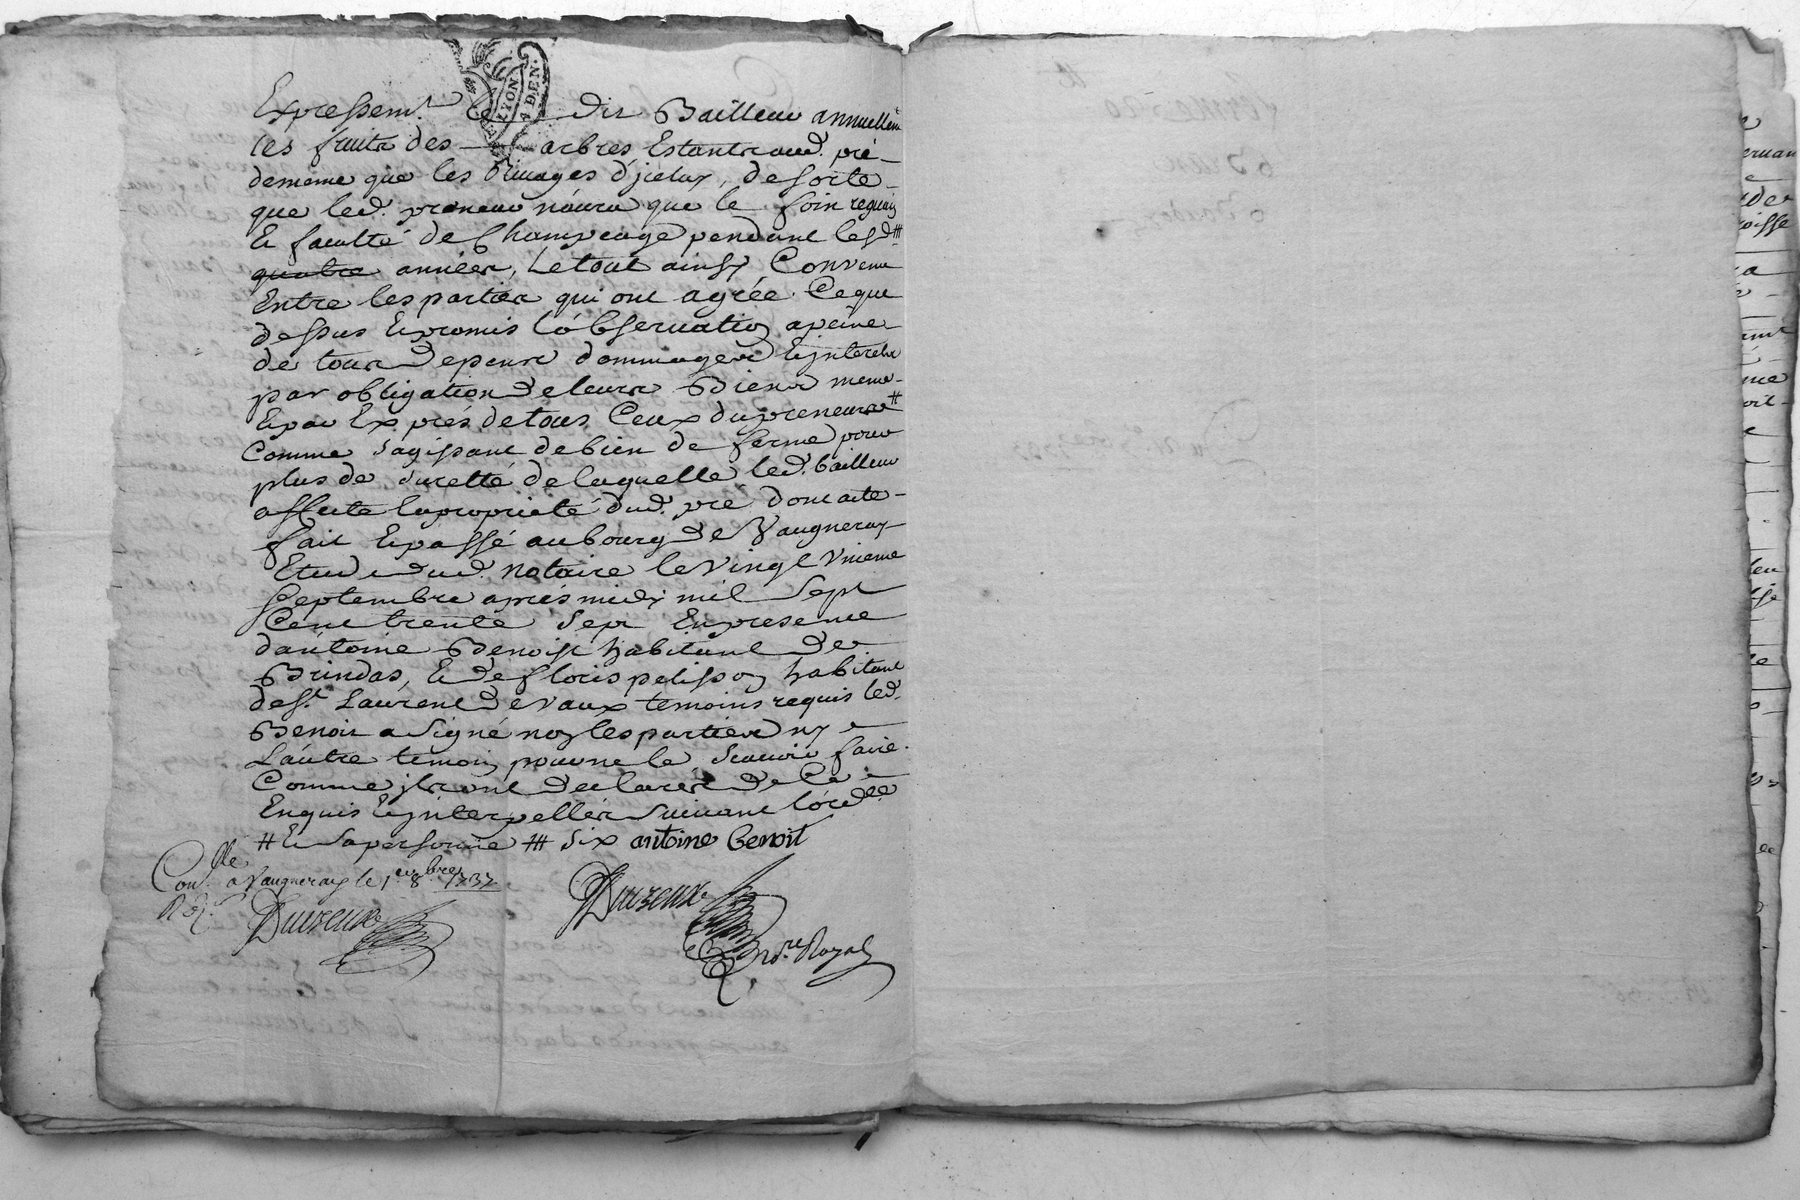 LYON
4 DEN.
Expressem.t le dit Bailleur annuellem
les fruits des arbres Estants aud. pré
de meme que les d'iceluy, de sorte
que led. preneur n'aura que le foin
Et faculté de Champeage pendant lesd #
quatre années, Le tout ainsy Convenu
Entre les parties qui ont agréé Ce que
dessus Et promis l'observation a peine
de tous depens dommages Et interets
par obligation de leurs Biens meme
Et par Exprés de tous Ceux du preneur #
Comme s'agissant de bien de ferme pour
plus de suretté de laquelle led. bailleur
affecte la proprieté dud. pré dont acte
fait Et passé au bourg de Vaugneray
Etude dud. notaire le vingt Unieme
Septembre apres midy mil Sept
Cent trente Sept En presence
d'antoine Benoist habitant de
Brindas, Et de floris pelisson habitant
de St. Laurent de vaux temoins requis led.
Benoit a signé non les parties ny
L'autre temoin pour ne le Scavoir faire
Comme ils ont declarés de Ce
Enquis Et interpellés suivant l'ord.ce
# Et sa personne ## six antoine benoit
Con.lle a Vaugneray le 1.er 8.bre 1737
Duvreux
Duvreux
no.re Royal